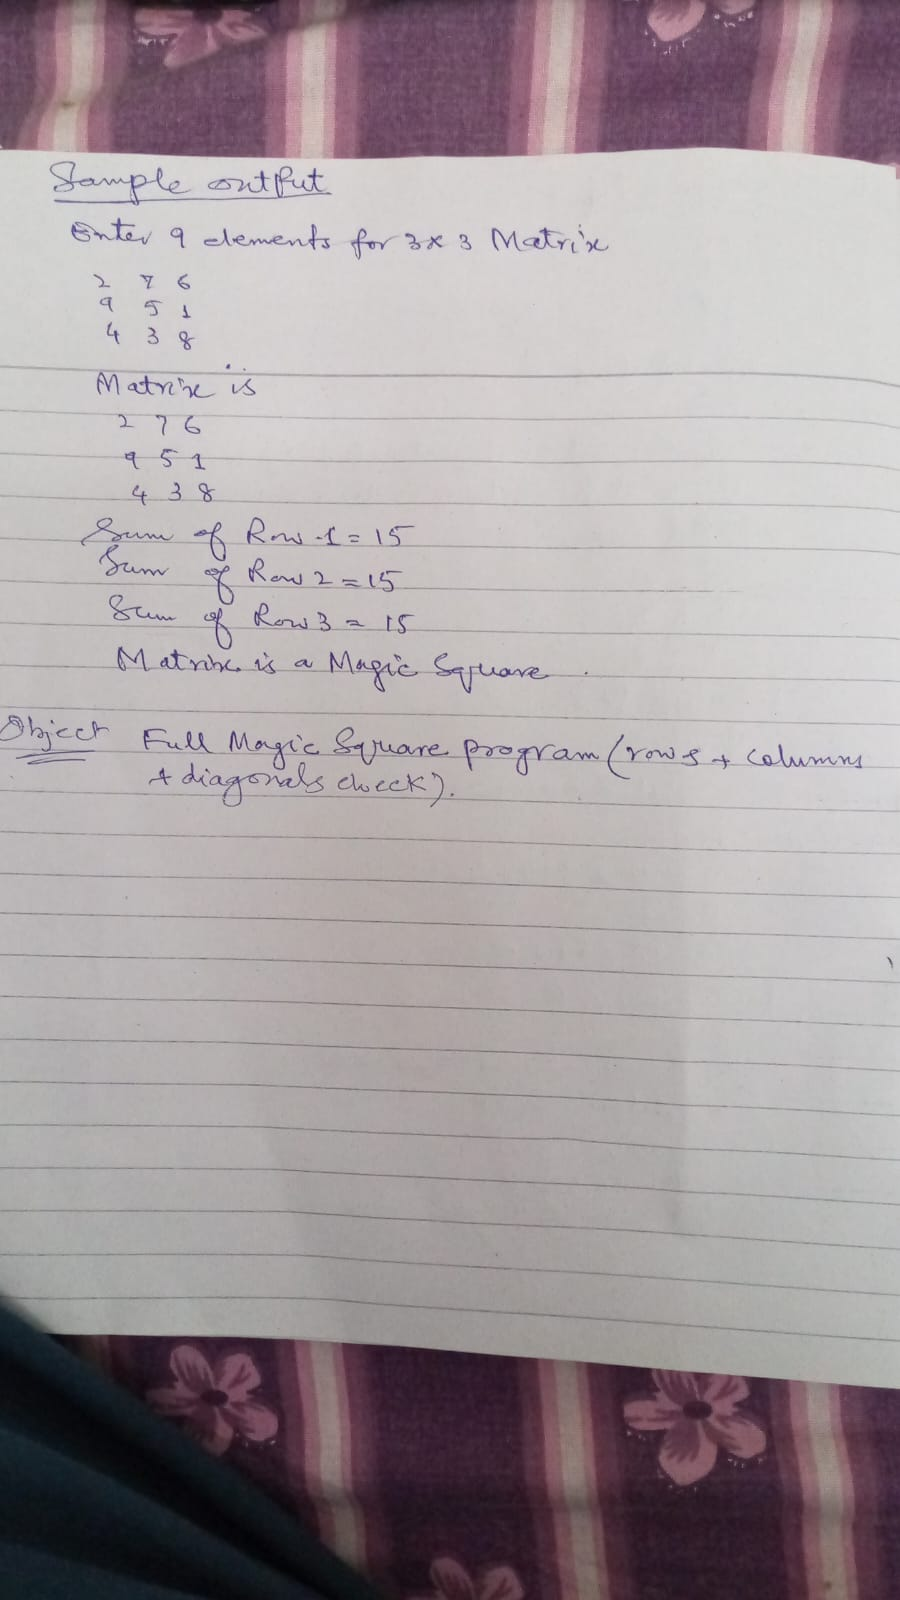 Sample output
Enter 9 elements for 3x3 Matrix
2 7 6
9 5 1
4 3 8
Matrix is
2 7 6
9 5 1
4 3 8
Sum of Row-1 = 15
Sum of Row 2 = 15
Sum of Row 3 = 15
Matrix is a Magic Square.
Object Full Magic Square program (rows + columns
+ diagonals check).